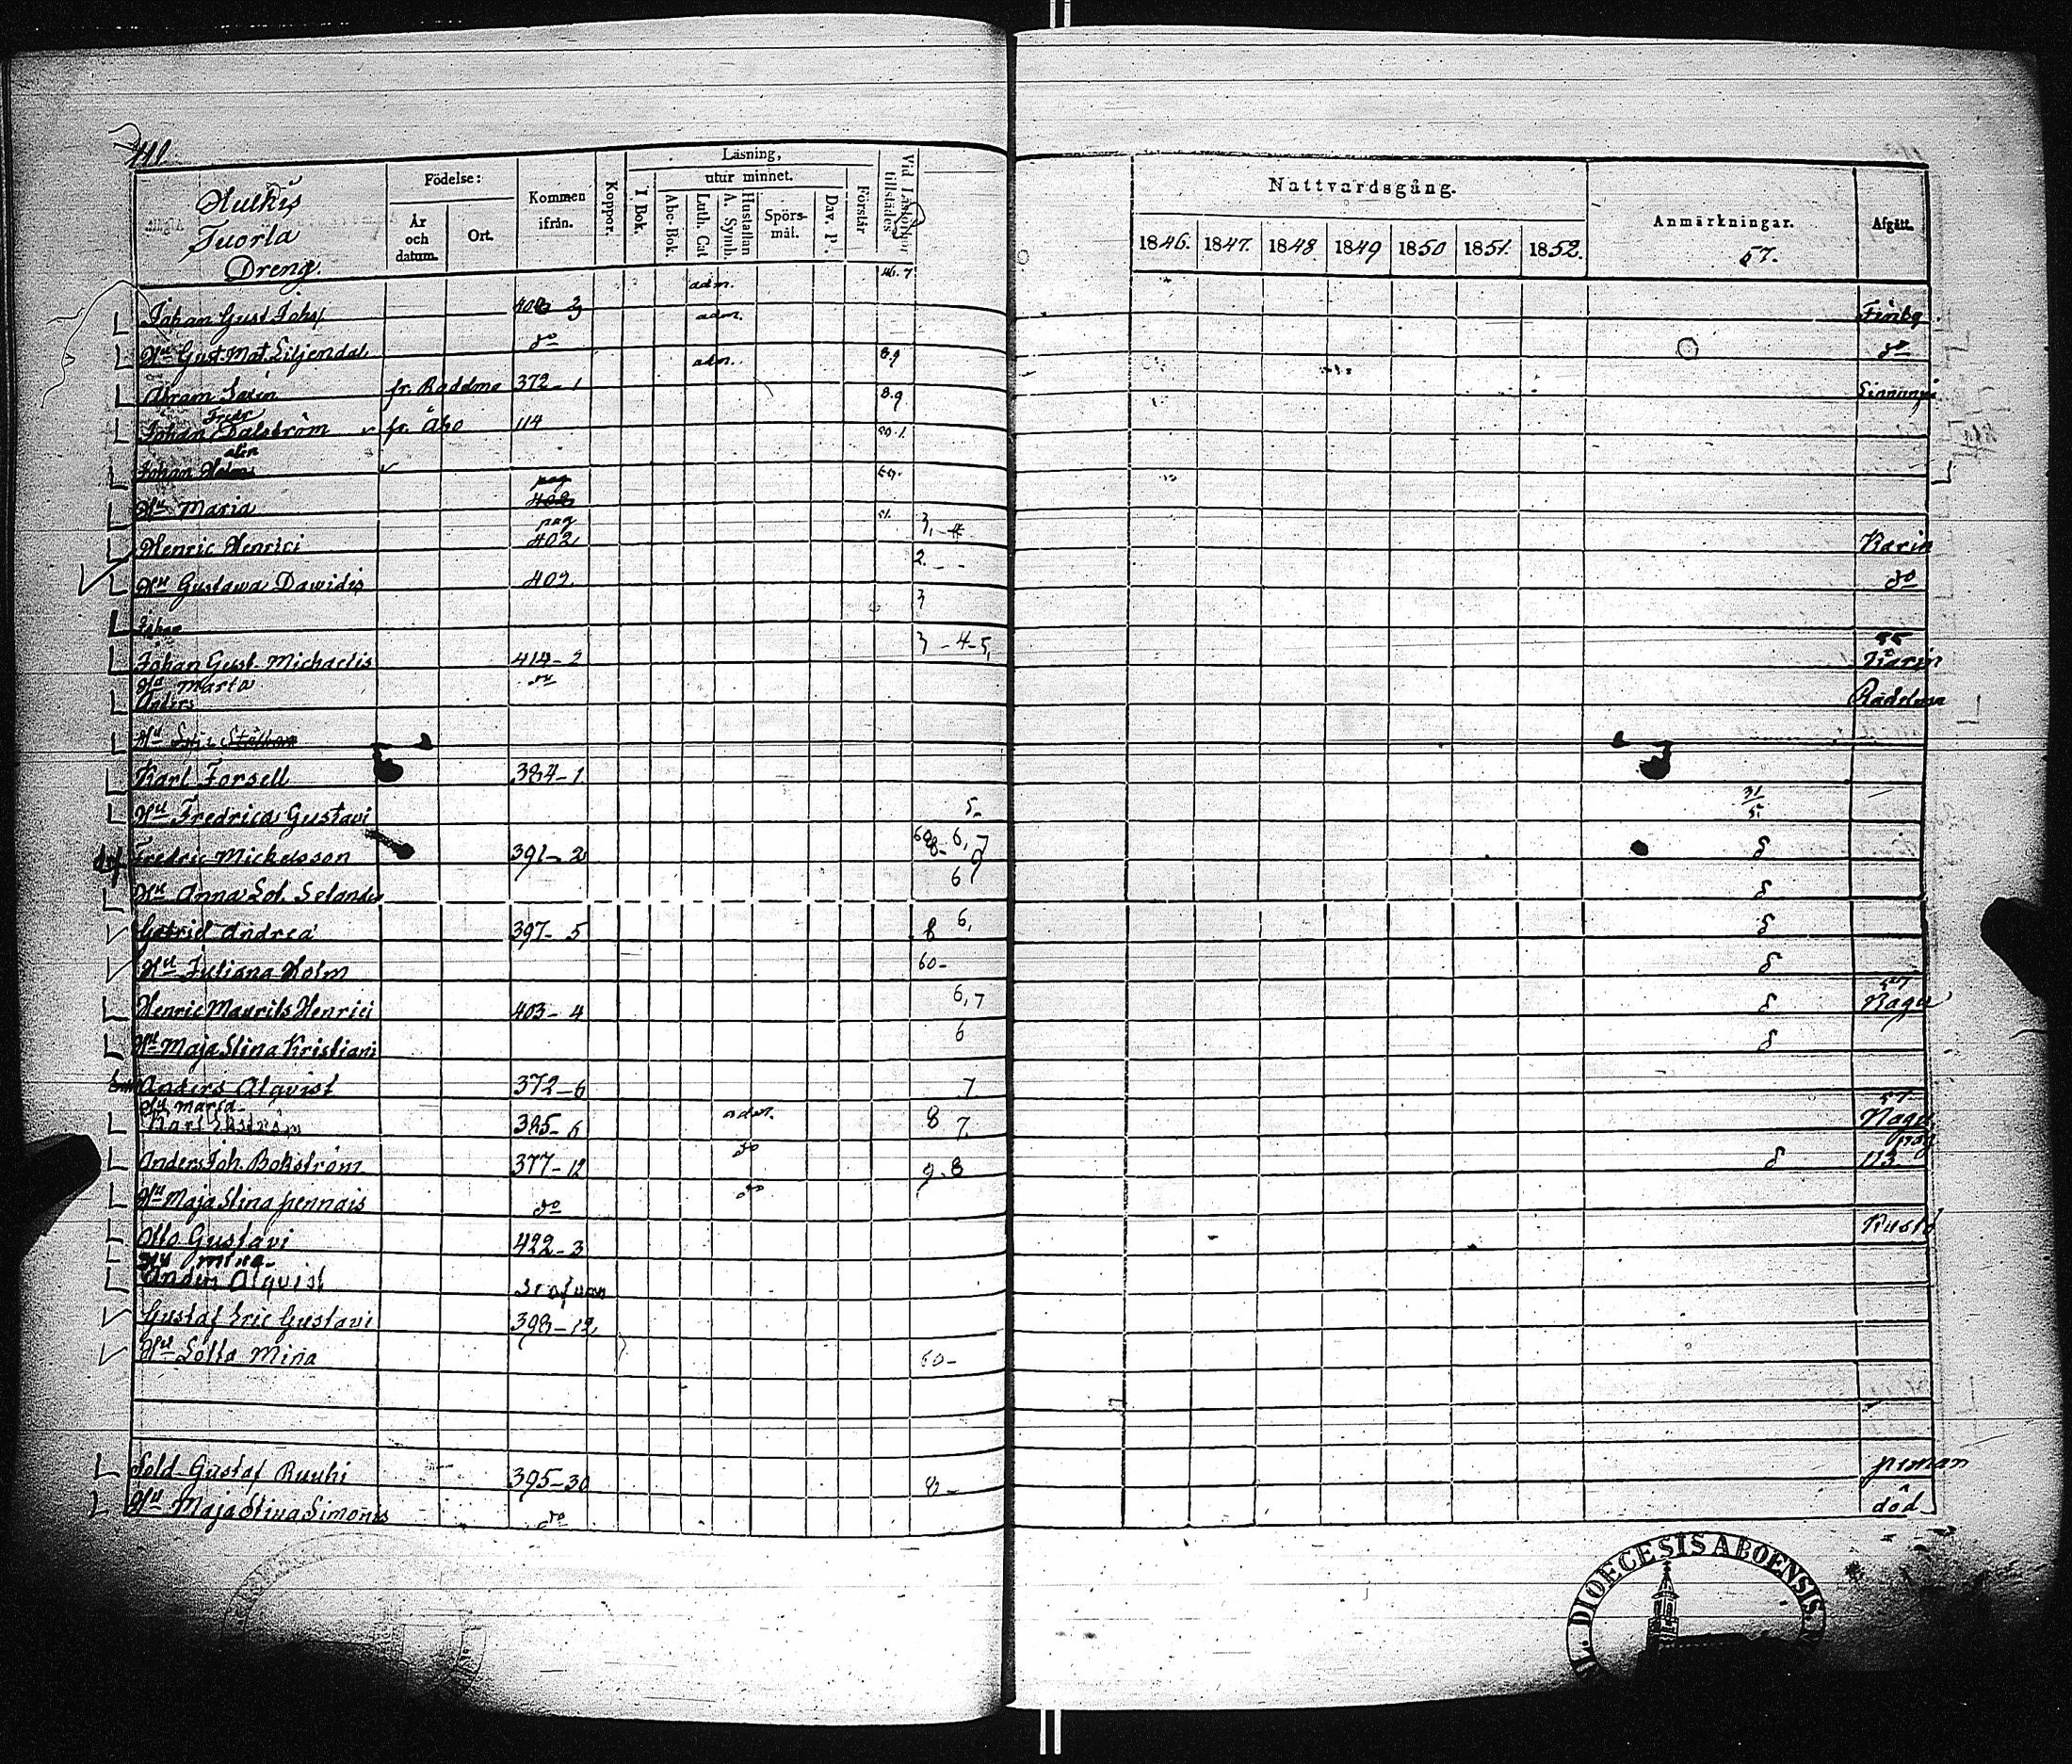 411
Hulkis
Tuorla
Dreng.
Födelse:
År och datum.
Ort.
Kommen ifrån.
Koppor.
Läsning,
I. Bok.
utur minnet.
Abc-Bok.
Luth. Cat
A. Symb.
Hustaflan
Spörs-mål.
Dav. P.
Förstår
Vid Läseförhör tillstädes
Nattvardsgång.
1846. 1847. 1848 1849 1850 1851. 1852.
Anmärkningar.
57.
Afgått.
adm. 46.7
Johan Gust Johs adm. Finby
Hu Gust. Mat. Liljendal do adm. 8.9 do
Abram fr. Raddma 372-1 8.9
Johan Dalström fr. Åbo 114
Johan
Hu Maria pag 402
Henric Henrici pag 402 3,-4 Karin
Hu Gustawa Dawidis 402 2. do
Johan 3
Johan Gust. Michaelis 414-2 3-4-5, 55 Karin
Hu Maria do
Anders Rådelma
Hu
Karl Forsell 384-1
Hu Fredrica Gustavi 5. 31/5
Fredric Mickelsson 391-2 6,7
Hu Anna Sof. Selander 6
Gabriel Andrea 397-5 8 6,
Hu Juliana Holm 60-
Henric Maurits Henrici 403-4 6,7 57 Nagu
Hu Maja Stina Kristiani 6
Anders Alqvist 372-6 7
Hu Maria
Karl Ekström 385-6 adm. 8 7 57 Nagu
Anders Joh. Bokström 377-12 do 9.8 pag 113
Hu Maja Stina pennais do do
Otto Gustavi 422-3 Kusto
Hu Mina
Anders Alqvist
Gustaf Eric Gustavi 398-12
Hu Lotta Mina 60-
Sold Gustaf Ruuhi 395-30 8- piman
Hu Maja Stina Simonis do död
DIOECESIS ABOENSIS